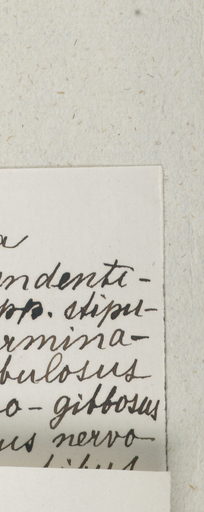 a
ndenti-
pp. stipu-
rmina-
bulosus
o-gibbosus
us nervo